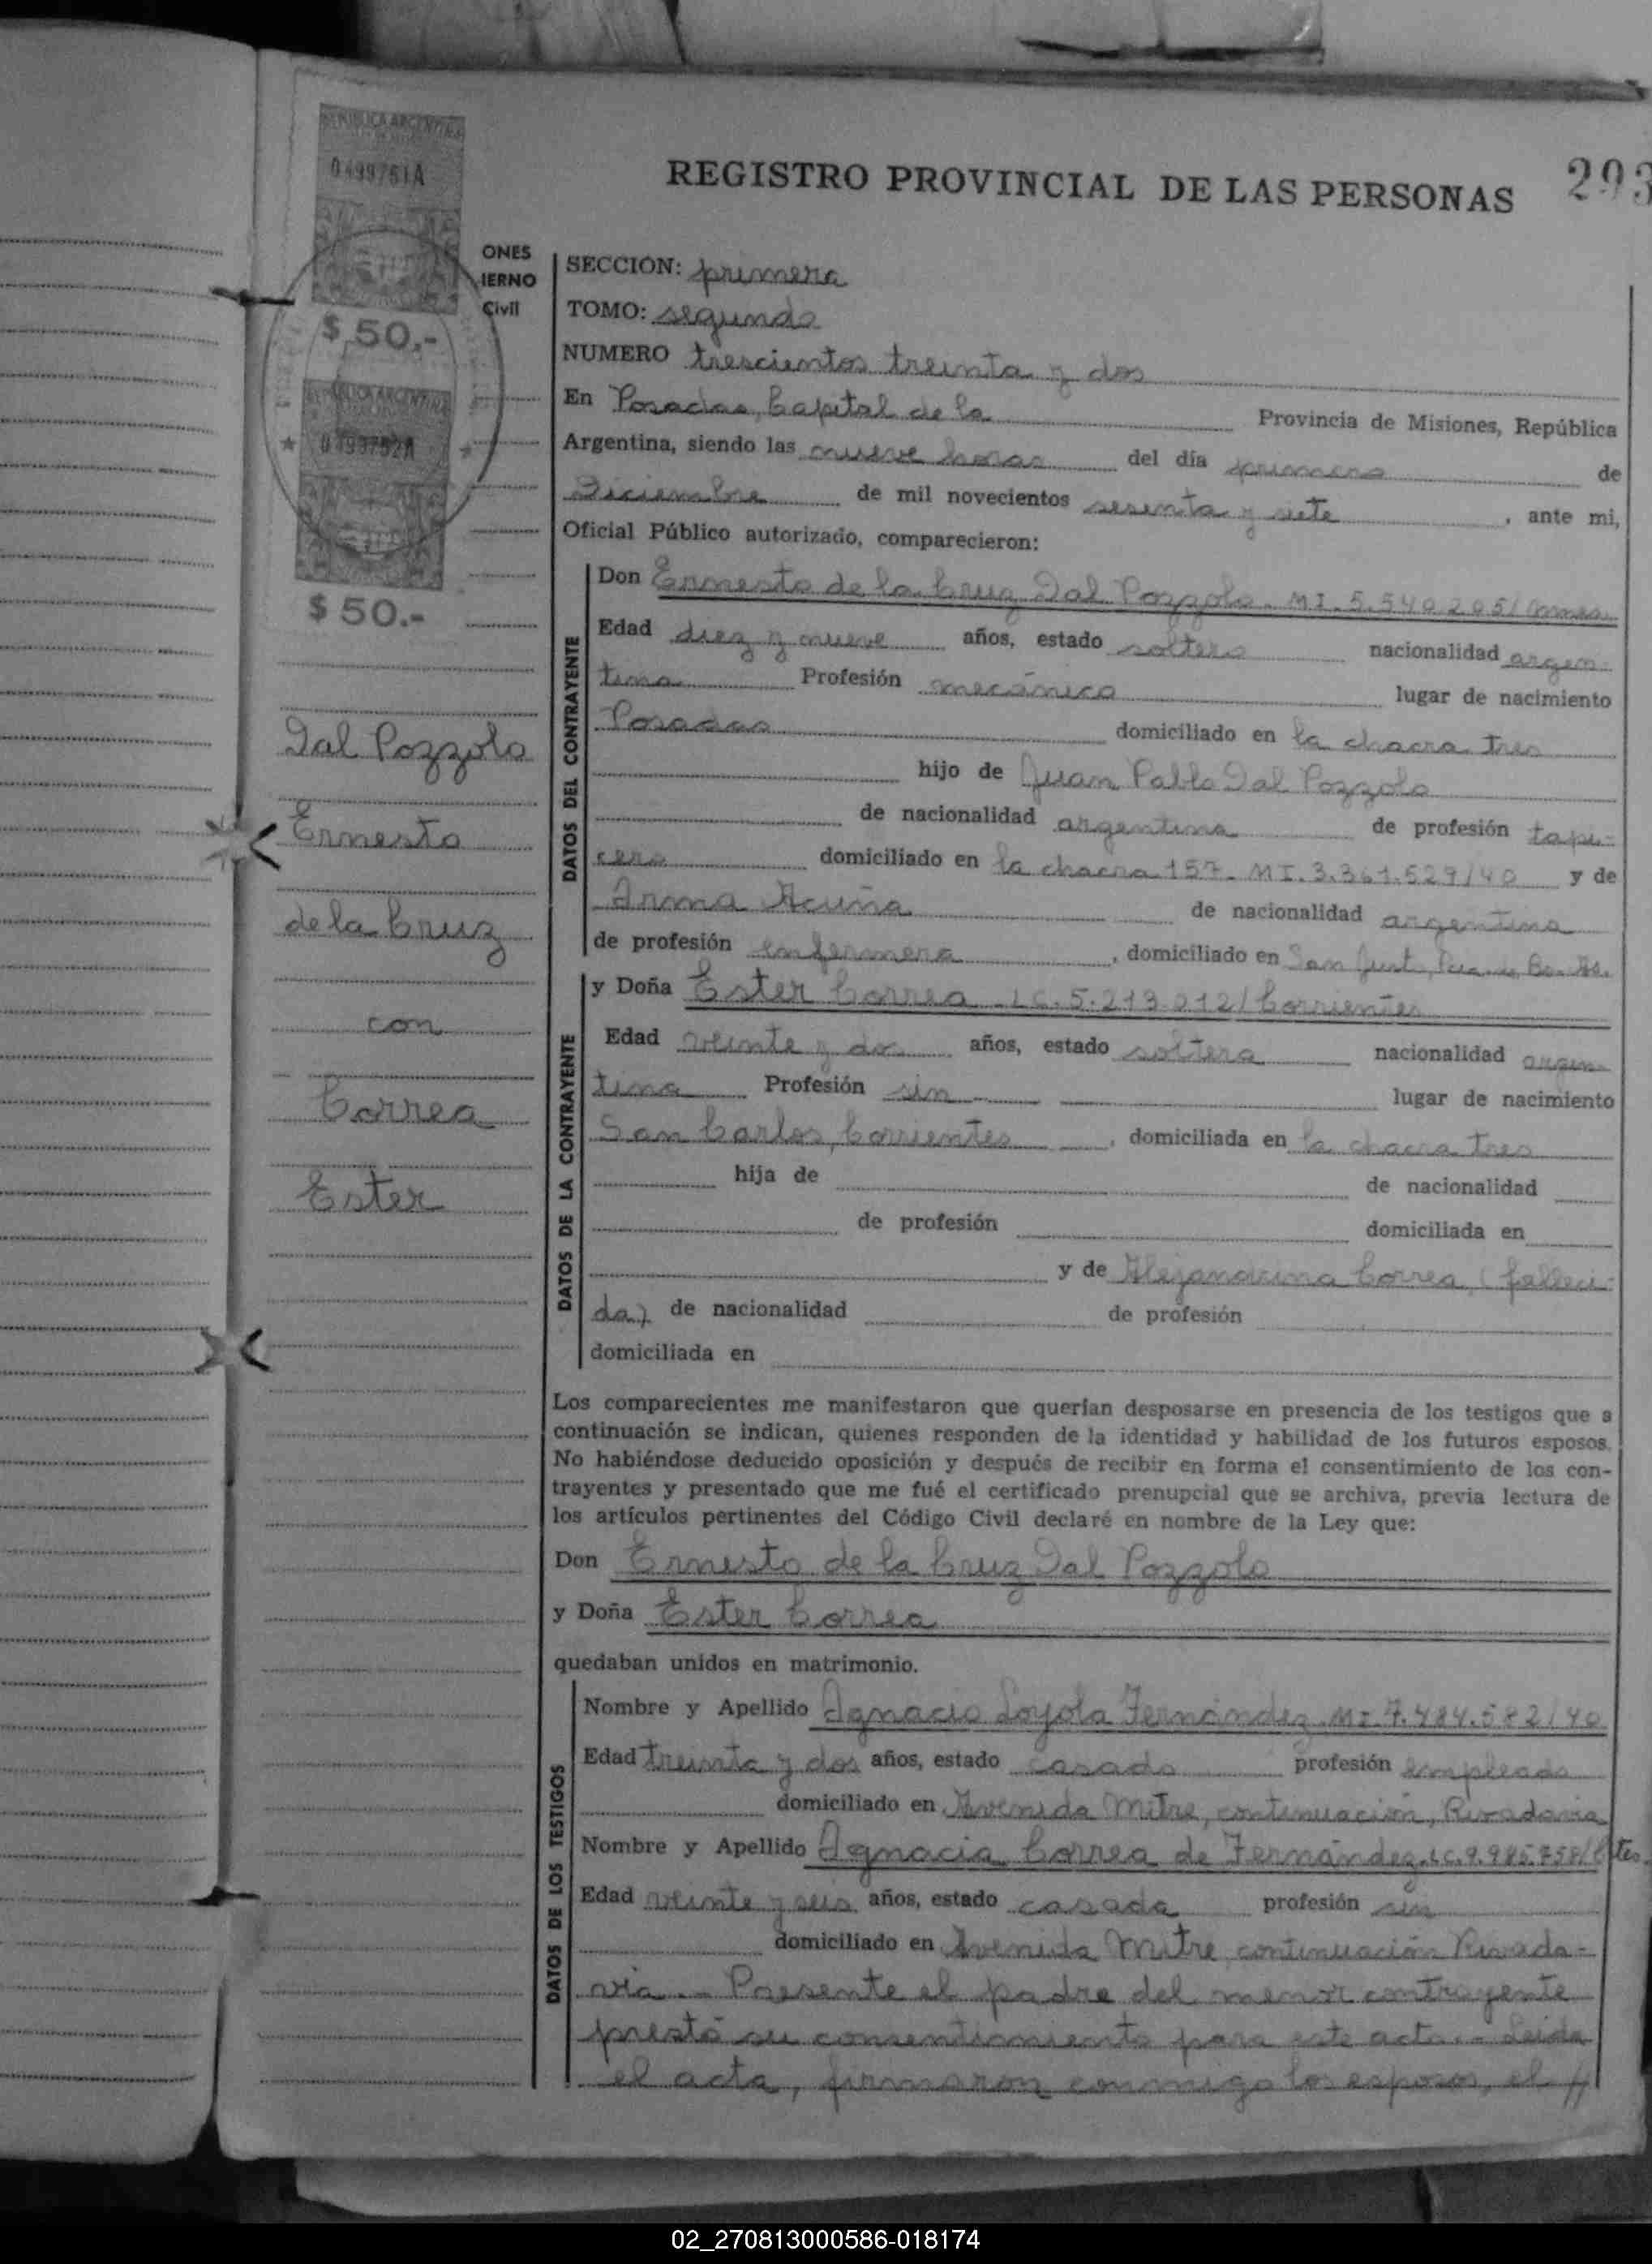 REPUBLICA ARGENTINA
0499751A
$ 50.-
REPUBLICA ARGENTINA
0499752A
$ 50.-
ONES
IERNO
Civil
REGISTRO PROVINCIAL DE LAS PERSONAS 293
SECCION: primera
TOMO: segundo
NUMERO trescientos treinta y dos
En Posadas, Capital de la Provincia de Misiones, República
Argentina, siendo las nueve horas del día primero de
Diciembre de mil novecientos sesenta y siete, ante mi,
Oficial Público autorizado, comparecieron:
DATOS DEL CONTRAYENTE
Don Ernesto de la Cruz Dal Pozzolo. MI. 5.540.205/
Edad diez y nueve años, estado soltero nacionalidad argen-
tina Profesión mecánico lugar de nacimiento
Posadas domiciliado en la chacra tres
hijo de Juan Pablo Dal Pozzolo
de nacionalidad argentina de profesión tapi-
cero domiciliado en la chacra 157. MI. 3.361.529/40 y de
Irma Acuña de nacionalidad argentina
de profesión enfermera, domiciliado en San Justo, Pcia. de Bs. As.
DATOS DE LA CONTRAYENTE
y Doña Ester Correa - LC. 5.213.012/Corrientes
Edad veinte y dos años, estado soltera nacionalidad argen-
tina Profesión sin lugar de nacimiento
San Carlos, Corrientes, domiciliada en la chacra tres
hija de de nacionalidad
de profesión domiciliada en
y de Alejandrina Correa, (falleci-
da) de nacionalidad de profesión
domiciliada en
Los comparecientes me manifestaron que querían desposarse en presencia de los testigos que a
continuación se indican, quienes responden de la identidad y habilidad de los futuros esposos.
No habiéndose deducido oposición y después de recibir en forma el consentimiento de los con-
trayentes y presentado que me fué el certificado prenupcial que se archiva, previa lectura de
los artículos pertinentes del Código Civil declaré en nombre de la Ley que:
Don Ernesto de la Cruz Dal Pozzolo
y Doña Ester Correa
quedaban unidos en matrimonio.
DATOS DE LOS TESTIGOS
Nombre y Apellido Ignacio Loyola Fernández. MI. 7.484.582/40
Edad treinta y dos años, estado casado profesión empleado
domiciliado en Avenida Mitre, continuación, Rivadavia
Nombre y Apellido Ignacia Correa de Fernández. LC. 9.985.758/Ctes.
Edad veinte y seis años, estado casada profesión sin
domiciliado en Avenida Mitre continuación Rivada-
via.- Presente el padre del menor contrayente
prestó su consentimiento para este acto.- Leida
el acta, firmaron conmigo los esposos, el //
Dal Pozzolo
Ernesto
de la Cruz
con
Correa
Ester
02_270813000586-018174